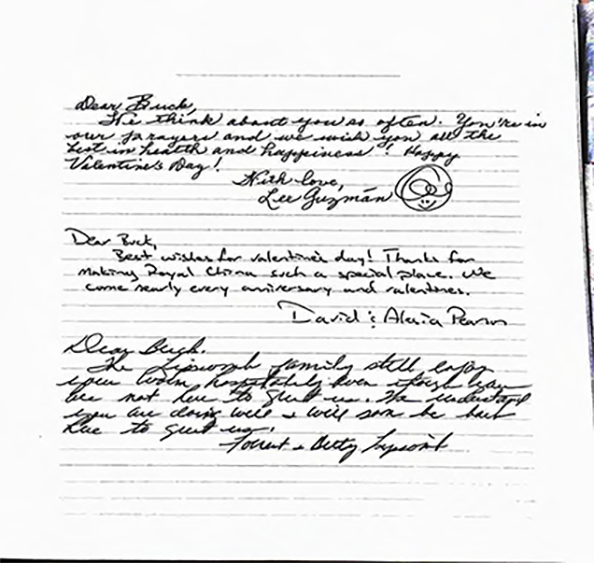 Dear Buck,
We think about you so often. You're in
our prayers and we wish you all the
best in health and happiness! Happy
Valentine's Day!
With love,
Lee Guzmán
Dear Buck,
Best wishes for valentine's day! Thanks for
making Royal China such a special place. We
come nearly every anniversary and valentines.
David & Alexia
Dear Buck.
The Lipscomb family still enjoy
your warm hospitality even though you
are not here to greet us. We understand
you are doing well & will soon be back
here to greet us.
Forrest & Betty Lipscomb